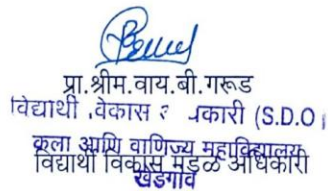 प्रा.श्रीम.वाय.बी.गरूड
विद्यार्थी .वेकास कारी (S.D.O
कला आणि वाणिज्य महाविद्यालय
विद्यार्थी विकास मंडळ अधिकारी
खेडगाव